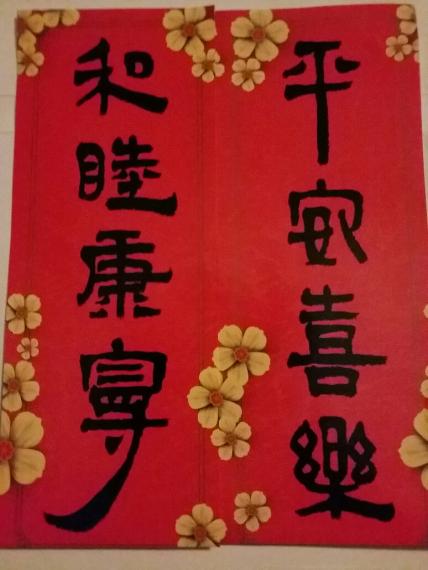 平安喜樂
和睦康寧